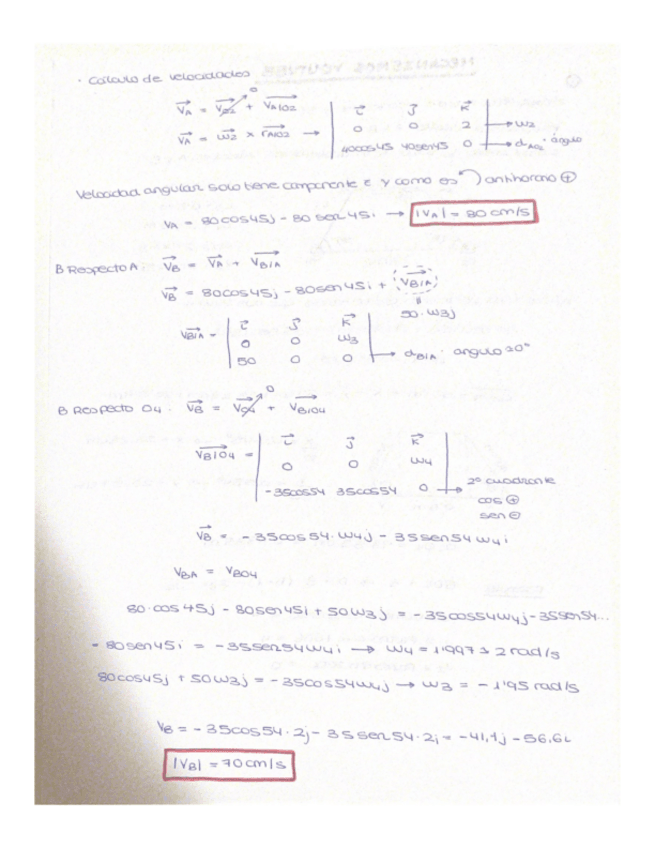 · Cálculo de velocidades
VA = VO2 + VA/O2 (→ 0)
VA = ω2 x rA/O2 → | i j k |
| 0 0 2 | → ω2
| 40cos45 40sen45 0 | → dAO2 · ángulo
Velocidad angular solo tiene componente k y como es antihorario ⊕
VA = 80cos45j - 80 sen 45i → |VA| = 80 cm/s
B Respecto A: VB = VA + VB/A
VB = 80cos45j - 80sen45i + VB/A
50·ω3j
VB/A = | i j k |
| 0 0 ω3 |
| 50 0 0 | → dB/A · angulo
B Respecto O4: VB = VO4 + VB/O4 (→ 0)
VB/O4 = | i j k |
| 0 0 ω4 |
| -35cos54 35cos54 0 | → 2º cuadrante
cos ⊕
sen ⊖
VB = -35cos54·ω4j - 35sen54ω4i
VBA = VBO4
80·cos45j - 80sen45i + 50ω3j = -35cos54ω4j-35sen54...
-80sen45i = -35sen54ω4i → ω4 = 1'997 ≈ 2 rad/s
80cos45j + 50ω3j = -35cos54ω4j → ω3 = -1'95 rad/s
VB = -35cos54·2j - 35sen54·2i = -41,1j - 56,6i
|VB| = 70cm/s